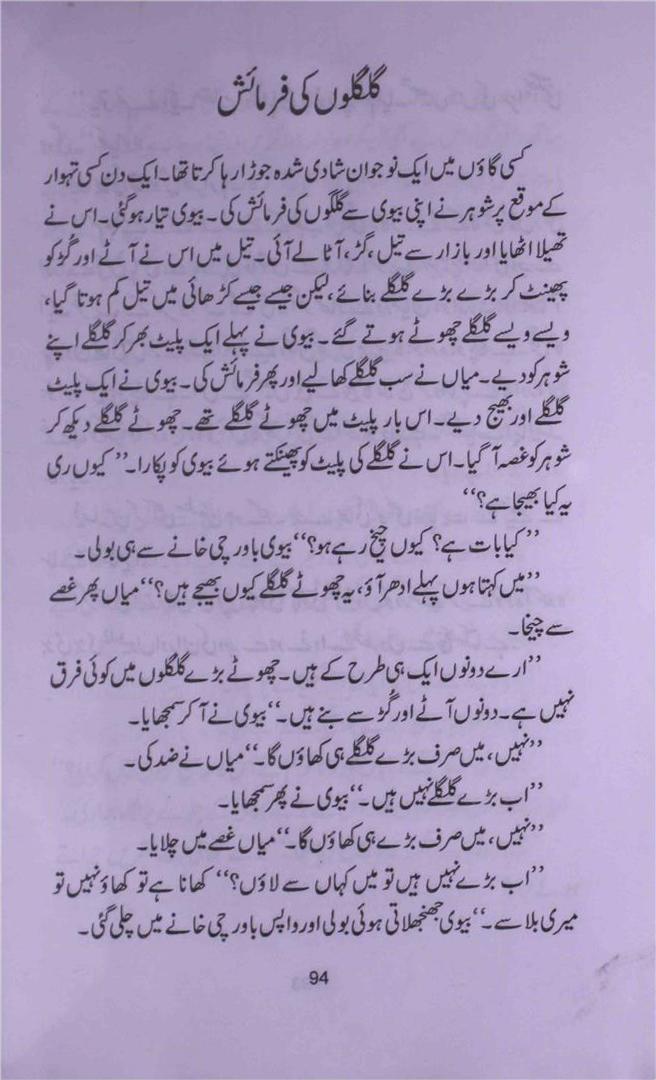 گلگلوں کی فرمائش
کسی گاؤں میں ایک نوجوان شادی شدہ جوڑا رہا کرتا تھا۔ ایک دن کسی تہوار
کے موقع پر شوہر نے اپنی بیوی سے گلگوں کی فرمائش کی۔ بیوی تیار ہوگئی۔ اس نے
تھیلا اٹھایا اور بازار سے تیل، گڑ، آٹا لے آئی۔ تیل میں اس نے آٹے اور گُڑ کو
پھینٹ کر بڑے بڑے گلگلے بنائے، لیکن جیسے جیسے کڑھائی میں تیل کم ہوتا گیا،
ویسے ویسے گلگلے چھوٹے ہوتے گئے۔ بیوی نے پہلے ایک پلیٹ بھر کر گلگلے اپنے
شوہر کو دیے۔ میاں نے سب گلگلے کھا لیے اور پھر فرمائش کی۔ بیوی نے ایک پلیٹ
گلگلے اور بھیج دیے۔ اس بار پلیٹ میں چھوٹے گلگلے تھے۔ چھوٹے گلگلے دیکھ کر
شوہر کو غصہ آ گیا۔ اس نے گلگلے کی پلیٹ کو پھینکتے ہوئے بیوی کو پکارا۔ ’’کیوں ری
یہ کیا بھیجا ہے؟‘‘
’’کیا بات ہے؟ کیوں چیخ رہے ہو؟‘‘ بیوی باورچی خانے سے ہی بولی۔
’’میں کہتا ہوں پہلے ادھر آؤ، یہ چھوٹے گلگلے کیوں بھیجے ہیں؟‘‘ میاں پھر غصے
سے چیخا۔
’’ارے دونوں ایک ہی طرح کے ہیں۔ چھوٹے بڑے گلگلوں میں کوئی فرق
نہیں ہے۔ دونوں آٹے اور گُڑ سے بنے ہیں۔‘‘ بیوی نے آ کر سمجھایا۔
’’نہیں، میں صرف بڑے گلگلے ہی کھاؤں گا۔‘‘ میاں نے ضد کی۔
’’اب بڑے گلگلے نہیں ہیں۔‘‘ بیوی نے پھر سمجھایا۔
’’نہیں، میں صرف بڑے ہی کھاؤں گا۔‘‘ میاں غصے میں چلایا۔
’’اب بڑے نہیں ہیں تو میں کہاں سے لاؤں؟‘‘ کھانا ہے تو کھاؤ نہیں تو
میری بلا سے۔‘‘ بیوی جھنجھلاتی ہوئی بولی اور واپس باورچی خانے میں چلی گئی۔
94